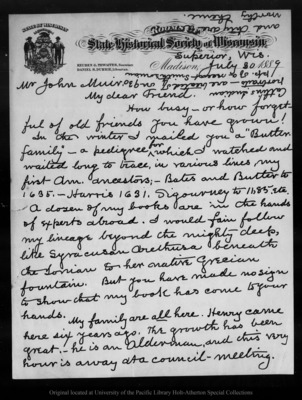 State Historical Society of Wisconsin
REUBEN G. THWAITES, Secretary
DANIEL S. DURRIE, Librarian
Superior, Wis.
Madison, July 30 1889
Mr John Muir
My dear Friend.
How busy - or how forget-
ful of old friends you have grown!
In the winter I mailed you a "Butler
family" - a pedigree which I watched and
waited long to trace, in various lines, my
first Am. ancestors; - Bates and Butler to
1635. - Harris 1631. Sigourney to 1685, etc.
A dozen of my books are in the hands
of experts abroad. I would fain follow
my lineage beyond the mighty deep,
like Syracusan Arethusa beneath
the Ionian to her native Grecian
fountain. But you have made no sign
to show that my book has come to your
hands.
My family are all here. Henry came
here six years ago. The growth has been
great, - he is an Alderman, and this very
hour is away at a council-meeting.
Original located at University of the Pacific Library Holt-Atherton Special Collections